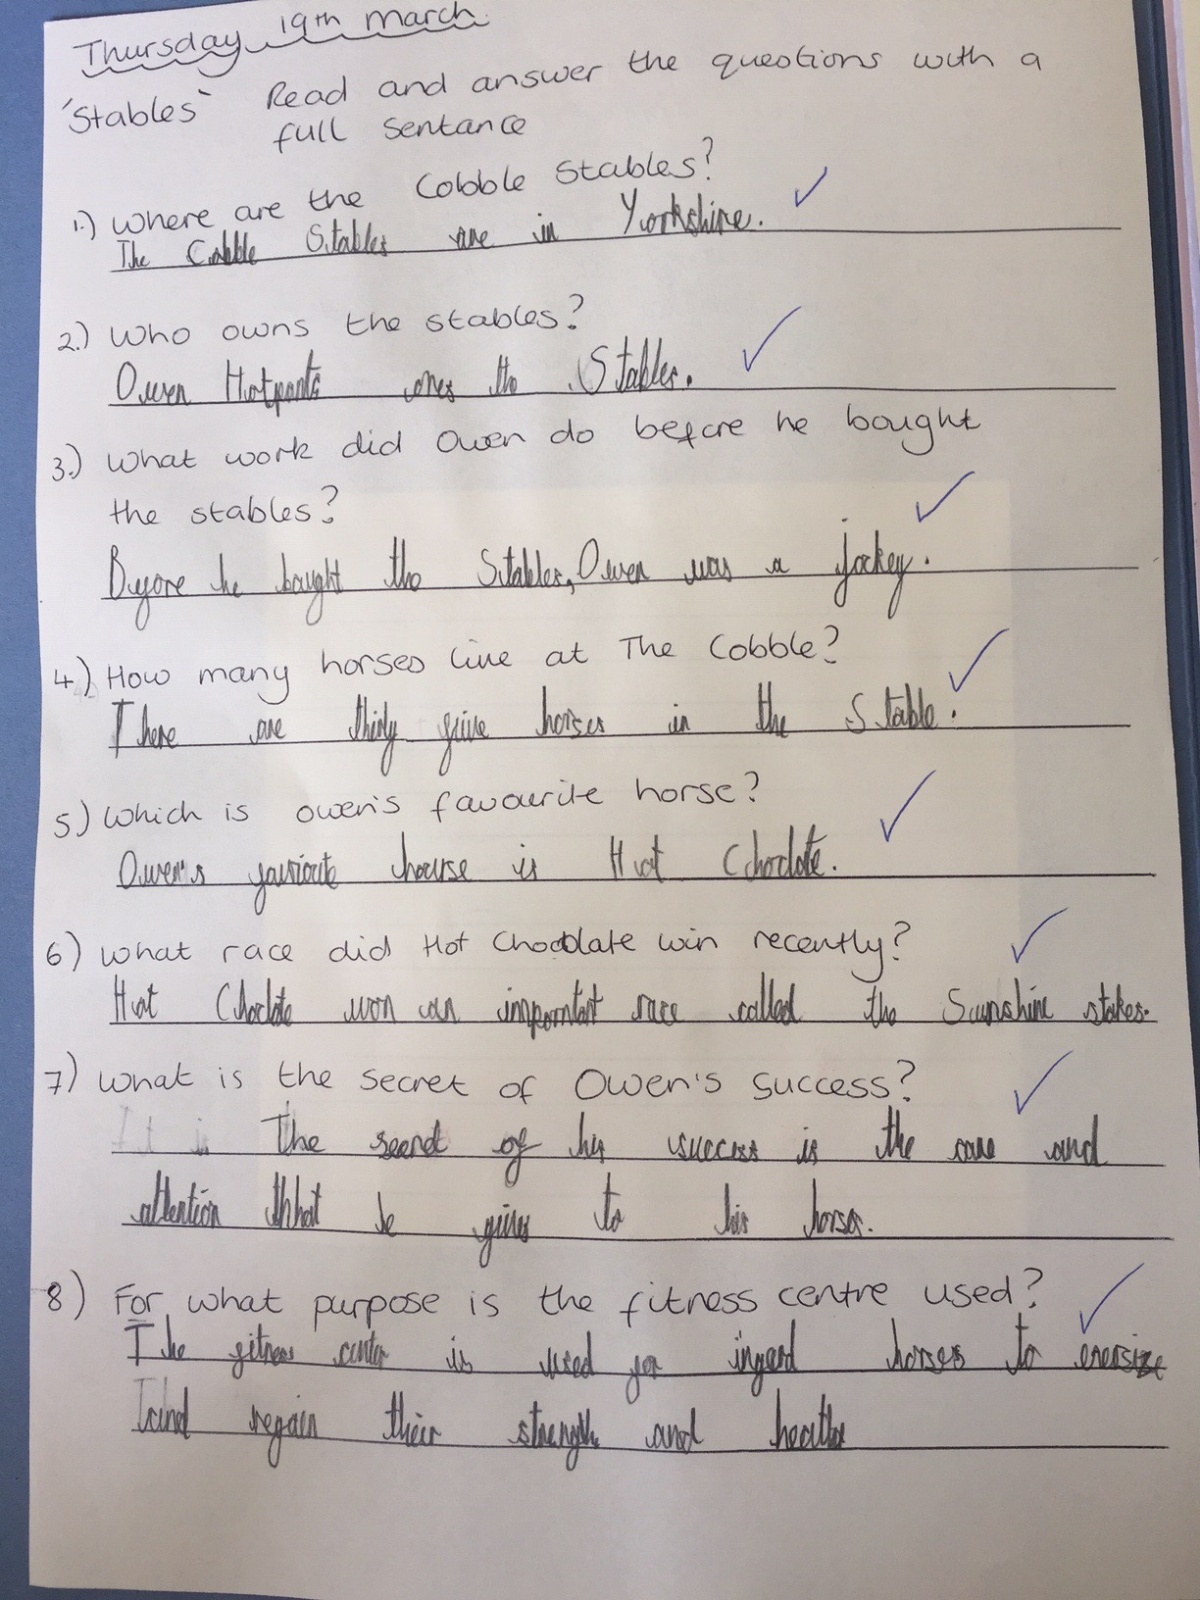 Thursday 19th March
'Stables' Read and answer the questions with a
full sentance
1.) Where are the Cobble Stables?
The Cobble Stables are in Yorkshire.
2.) Who owns the stables?
Owen Hotpants ones the Stables.
3.) What work did Owen do before he bought
the stables?
Before he bought the Stables, Owen was a jockey.
4.) How many horses live at The Cobble?
There are thirty five horses in the Stable.
5) Which is Owen's favourite horse?
Owen's house is Hot Choclate.
6) What race did Hot Chocolate win recently?
Hot Choclate won an race called the Sunshine stakes.
7) What is the secret of Owen's success?
It is The of his success is the care and
attention thhat he gives to his horses.
8) For what purpose is the fitness centre used?
The fitness center is used for horses to
and regain their and